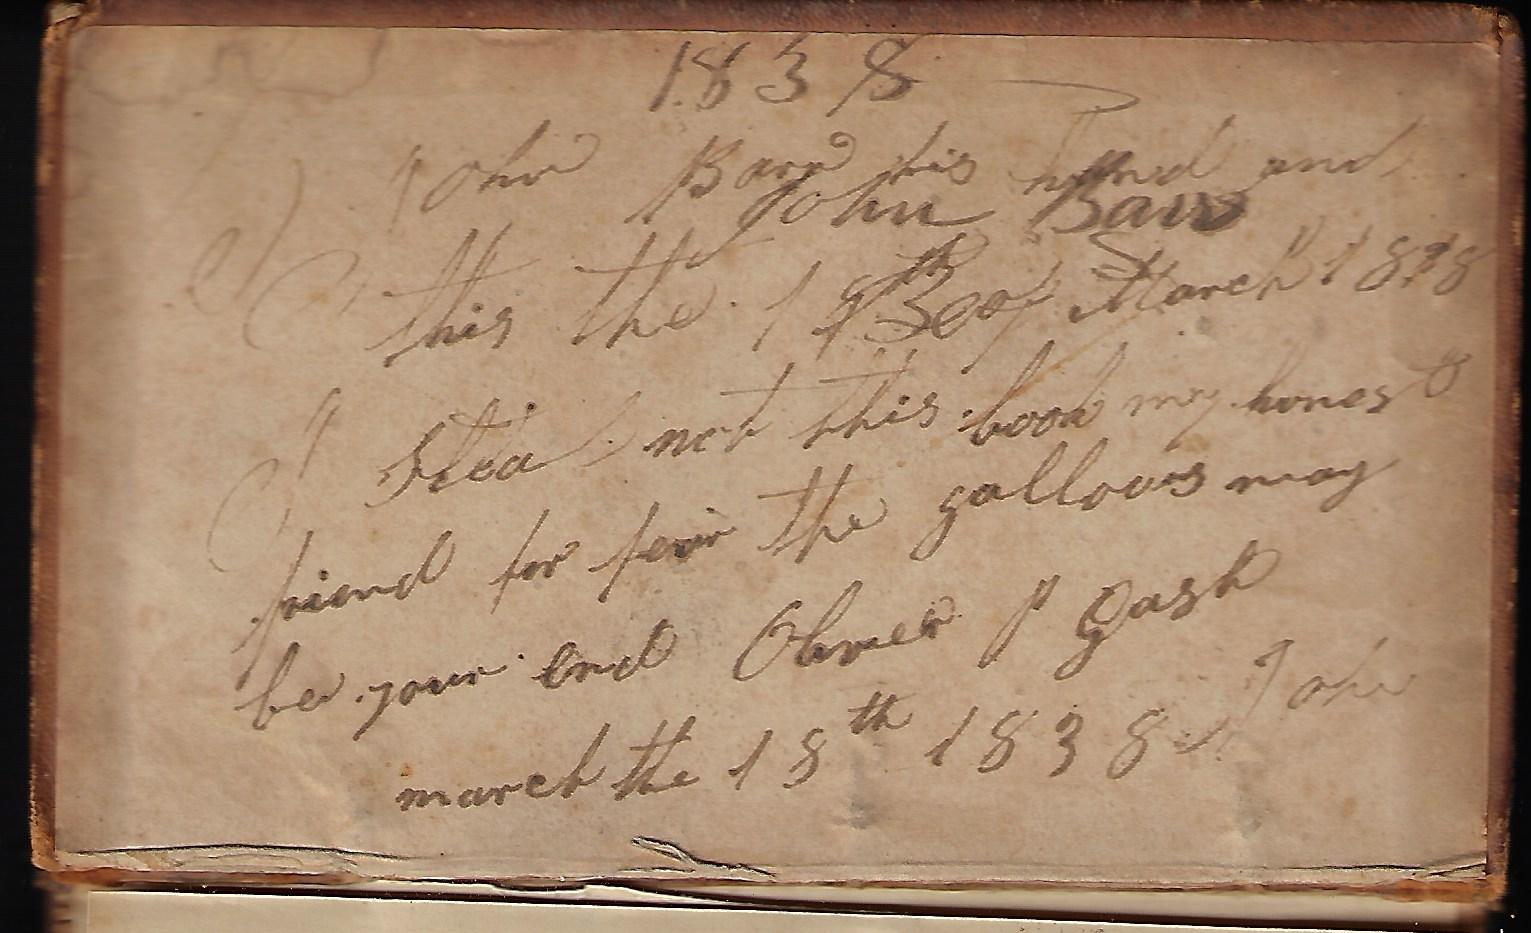 1838
John Barr his hand and
John Barr
this the 18 of March 1838
Steal not this book my honest
friend for feair the gallows may
be your end Oliver P Gash
march the 18th 1838 John